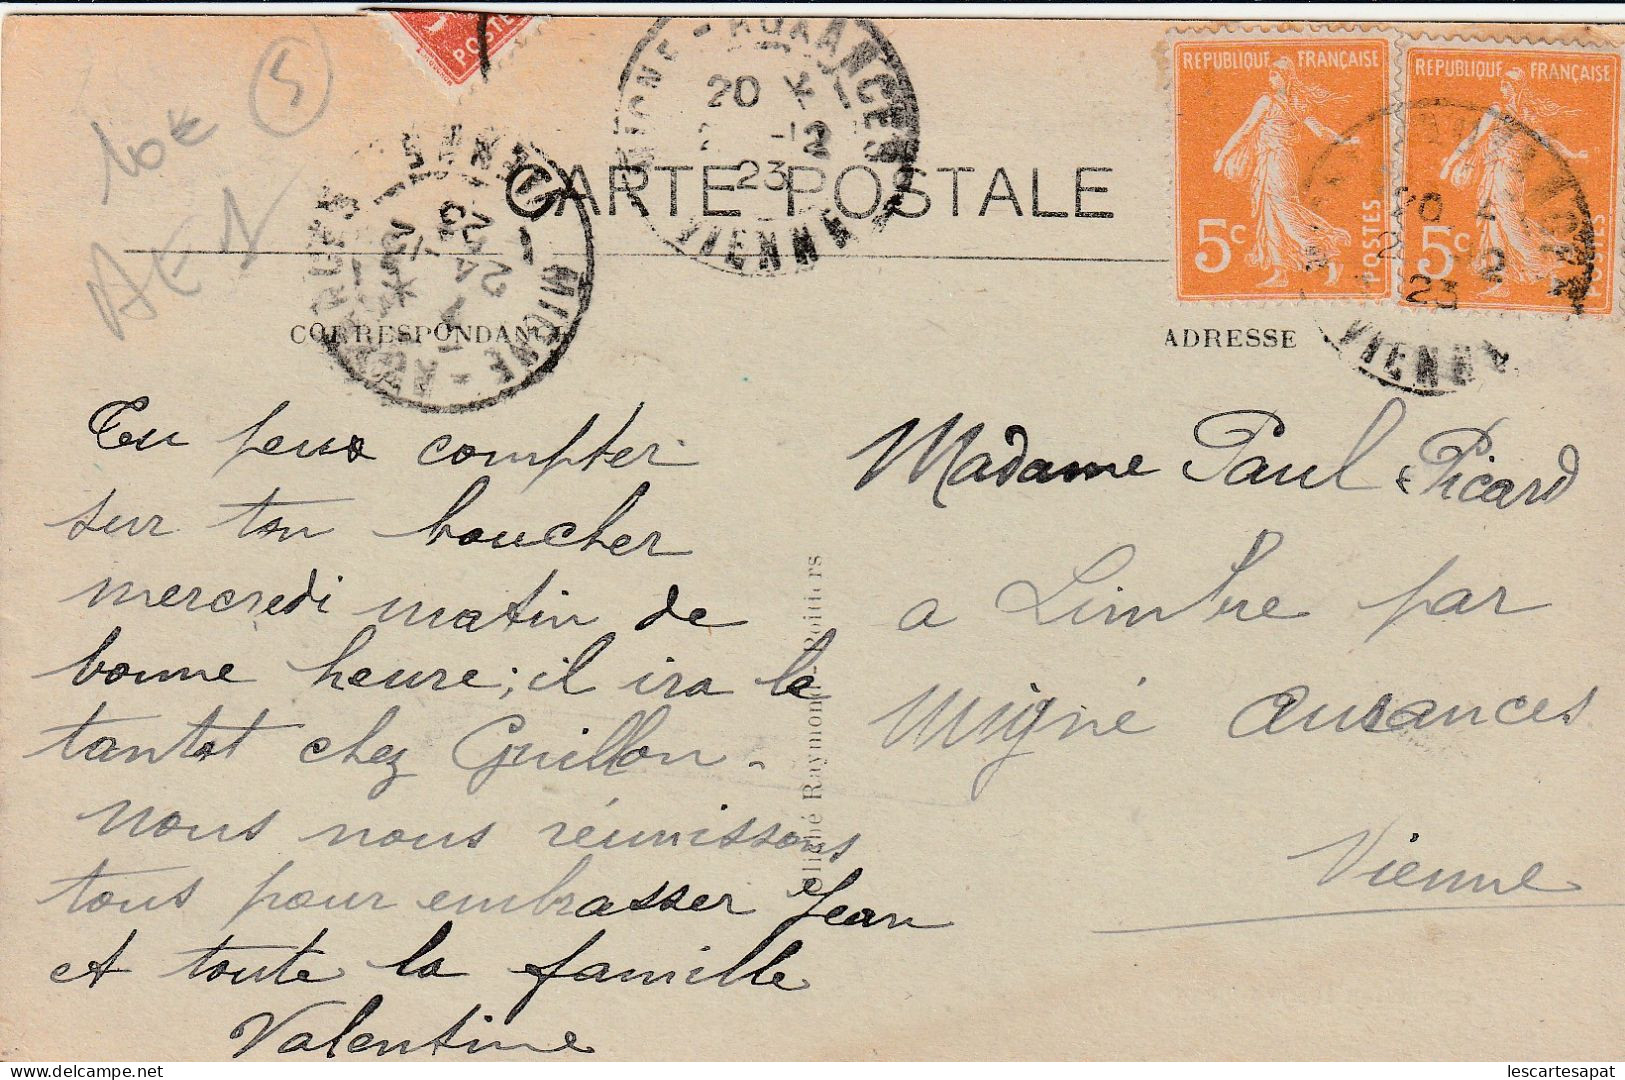 10€ 5
AEX
POSTES
MIGNE - AUXANCES
20 *
-12
23
VIENNE
REPUBLIQUE FRANÇAISE
5c POSTES
REPUBLIQUE FRANÇAISE
5c POSTES
CARTE POSTALE
CORRESPONDANCE
ADRESSE
Tu peux compter
sur ton boucher
mercredi matin de
bonne heure; il ira le
tantot chez Guillon.
nous nous réunissons
tous pour embrasser Jean
et toute la famille
Valentine
Cliché Raymond - Poitiers
Madame Paul Picard
a Limbre par
Migné Auxances
Vienne
lescartesapat